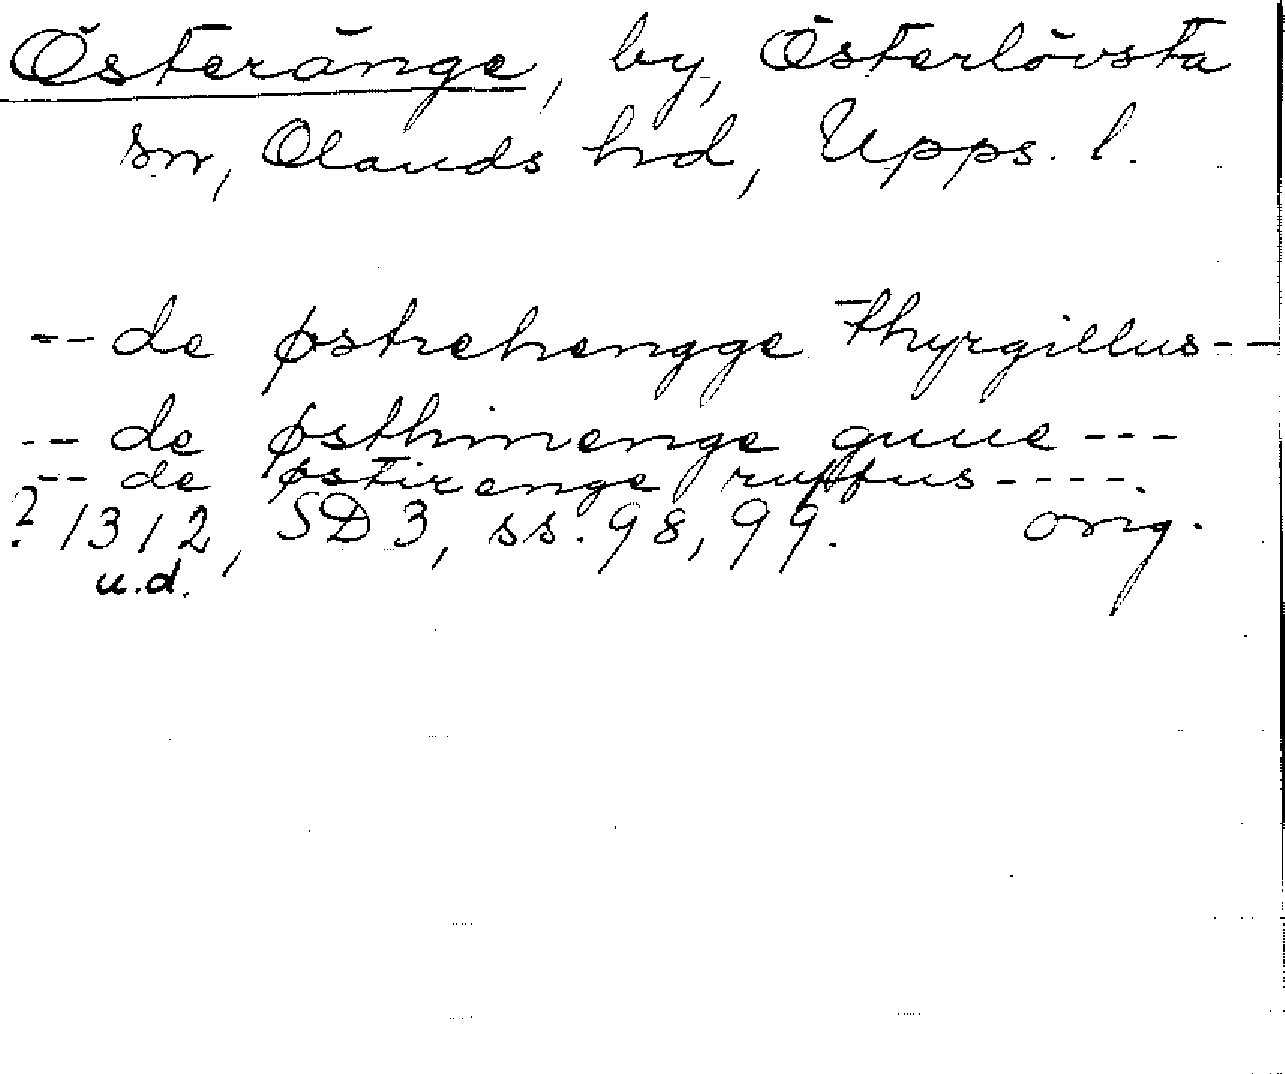 Österänge, by, Österlövsta
sn, Olands hd, Upps. l.
-- de østrehengge Thyrgillus --
-- de østhirenge guue ---
-- de østirenge ruffus ----.
? 1312, SD 3, ss. 98, 99. orig.
u.d.